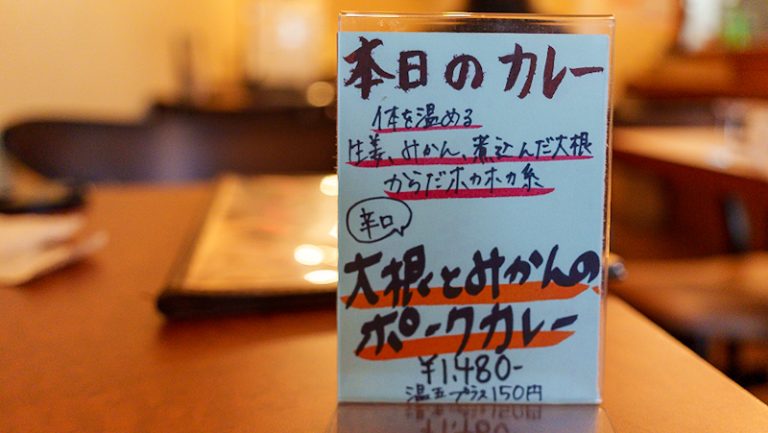 本日のカレー
体を温める
生姜、みかん、煮込んだ大根
からだホカホカ系
辛口
大根とみかんの
ポークカレー
¥1,480-
温玉プラス150円